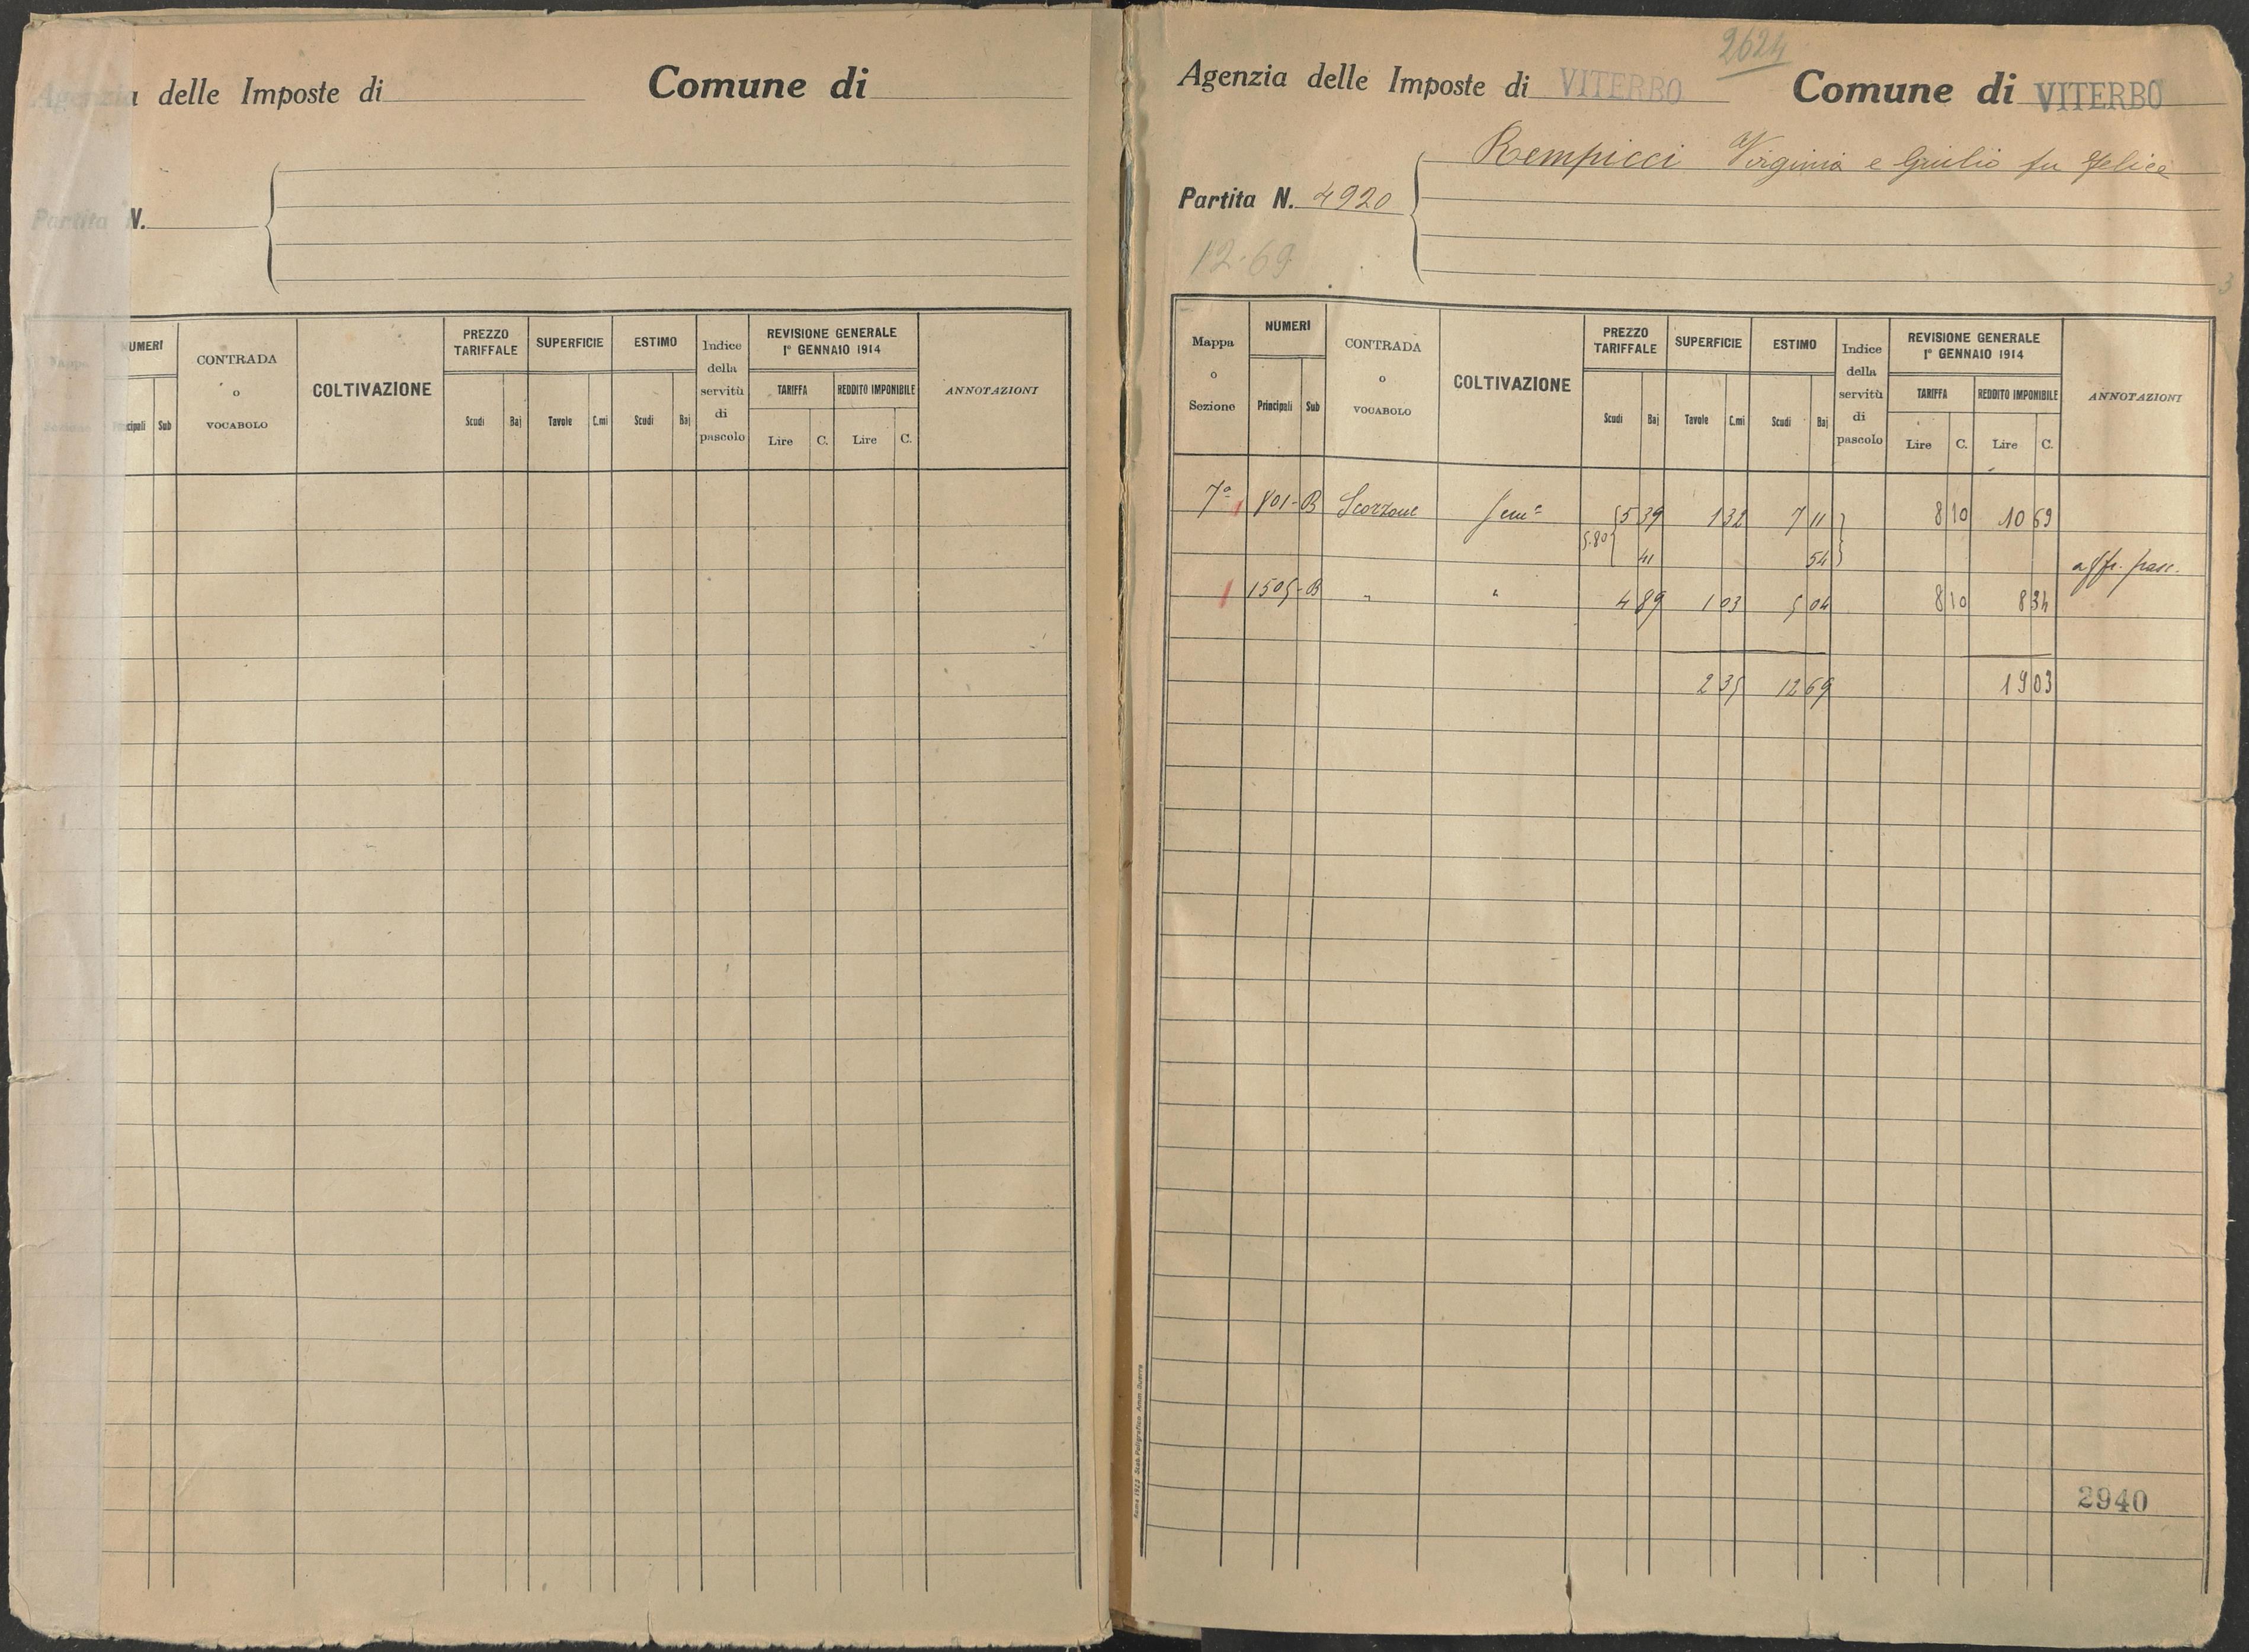 Agenzia delle Imposte di
Comune di
Partita N.
Mappa
Sezione
NUMERI
Principali Sub
CONTRADA
o
VOCABOLO
COLTIVAZIONE
PREZZO
TARIFFALE
Scudi Baj
SUPERFICIE
Tavole C.mi
ESTIMO
Scudi Baj
Indice
della
servitù
di
pascolo
REVISIONE GENERALE
1° GENNAIO 1914
TARIFFA REDDITO IMPONIBILE
Lire C. Lire C.
ANNOTAZIONI
2624
Agenzia delle Imposte di VITERBO
Comune di VITERBO
Rempicci Virginia e Giulio fu Felice
Partita N. 4920
12-69
3
Mappa
o
Sezione
NUMERI
Principali Sub
CONTRADA
o
VOCABOLO
COLTIVAZIONE
PREZZO
TARIFFALE
Scudi Baj
SUPERFICIE
Tavole C.mi
ESTIMO
Scudi Baj
Indice
della
servitù
di
pascolo
REVISIONE GENERALE
1° GENNAIO 1914
TARIFFA REDDITO IMPONIBILE
Lire C. Lire C.
ANNOTAZIONI
7a 801-B Scorzone Sema 5 39 1 32 7 11 8 10 10 69
5.80 41 54
affr. pasc.
1505-B " " 4 89 1 03 5 04 8 10 8 34
2 35 12 69 19 03
2940
Roma 1923 Stab. Poligrafico Amm. Guerra